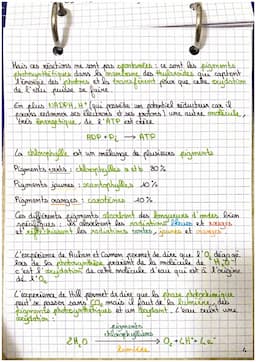 Mais ces réactions ne sont pas spontanées : ce sont les pigments
photosynthétiques dans la membrane des thylakoïdes qui captent
l'énergie des photons et la transfèrent pour que cette oxydation
de l'eau puisse se faire.
En plus NADPH, H⁺ (qui possède un potentiel réducteur car il
pourra redonner ses électrons et ses protons) une autre molécule,
très énergétique, de l'ATP est créée.
ADP + Pi → ATP
La chlorophylle est un mélange de plusieurs pigments
Pigments verts : chlorophylles a et b 80%
Pigments jaunes : xantophylles 10%
Pigments oranges : carotènes 10%
Ces différents pigments absorbent des longueurs d'ondes bien
spécifiques : ils absorbent les radiations bleues et rouges
et réfléchissent les radiations vertes, jaunes et oranges
L'expérience de Ruben et Kamen permet de dire que l'O₂ dégagé
lors de la photosynthèse provient de la molécule de H₂O :
c'est l'oxydation de cette molécule d'eau qui est à l'origine
de l'O₂.
L'expérience de Hill permet de dire que la phase photochimique
peut se passer sans CO₂ mais il faut de la lumière, des
pigments photosynthétiques et un oxydant. L'eau subit une
oxydation :
pigments
chlorophylliens
2H₂O → O₂ + 4H⁺ + 4e⁻
lumière
4